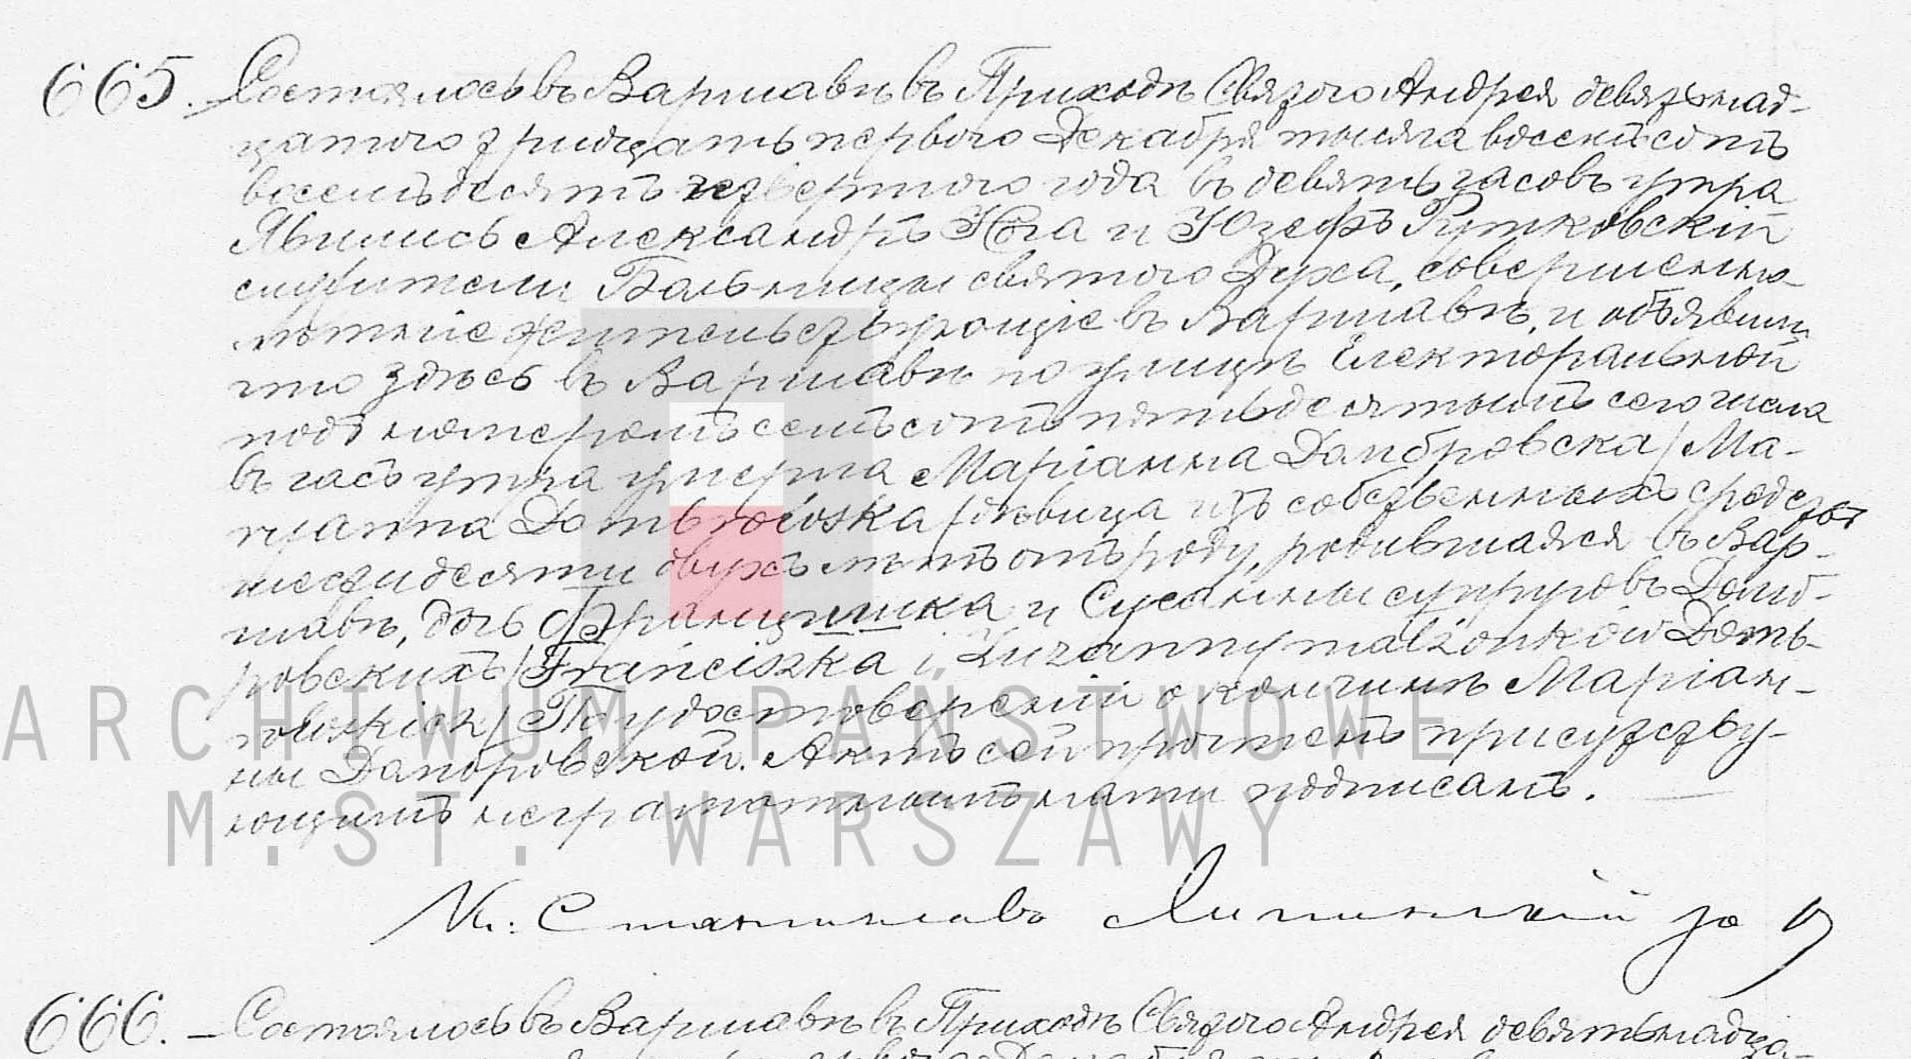 665. Состоялось въ Варшавѣ въ Приходѣ Святого Андрея девятьнад-
цатого тридцать первого Декабря тысяча восемьсотъ
восемьдесятъ четвертого года въ девять часовъ утра
Явились Александръ Юга и Юзефъ Рутковскій
служители Больницы святого Духа, совершенно-
лѣтніе жительствующіе въ Варшавѣ, и объявили
что здѣсь въ Варшавѣ по улицѣ Електоральной
подъ номеромъ семьсотъ пятьдесятымъ сего числа
въ часъ утра умерла Маріанна Домбровска /Ma-
ryanna Dombrowska/ дѣвица изъ собственныхъ средствъ
шестидесяти двухъ лѣтъ отъ роду, родившаяся въ Вар-
шавѣ, дочь Францишка и Сусанны супруговъ Домб-
ровскихъ /Franciszka i Zuzanny małżonków Domb-
rowskich/ По удостовѣреніи о кончинѣ Маріан-
ны Домбровской. Актъ сей прочтенъ присутству-
ющимъ неграмотнымъ нами подписанъ.
ARCHIWUM PAŃSTWOWE
M.ST. WARSZAWY
Кс: Станиславъ
666. Состоялось въ Варшавѣ въ Приходѣ Святого Андрея девятьнадца-